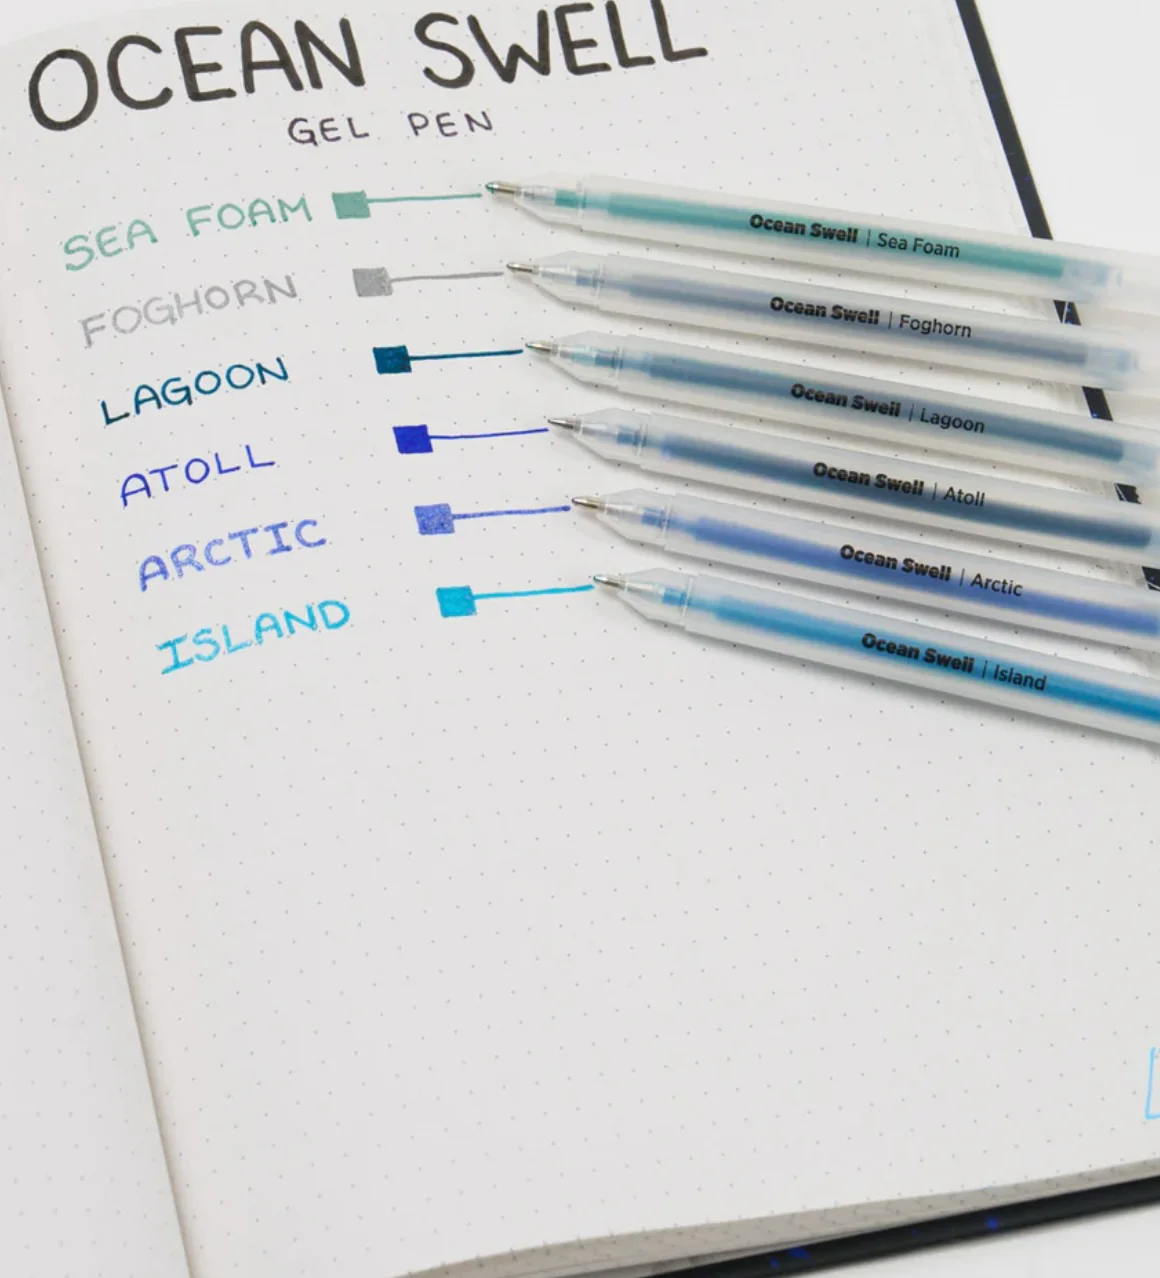 OCEAN SWELL
GEL PEN
SEA FOAM
Ocean Swell | Sea Foam
FOGHORN
Ocean Swell | Foghorn
LAGOON
Ocean Swell | Lagoon
ATOLL
Ocean Swell | Atoll
ARCTIC
Ocean Swell | Arctic
ISLAND
Ocean Swell | Island